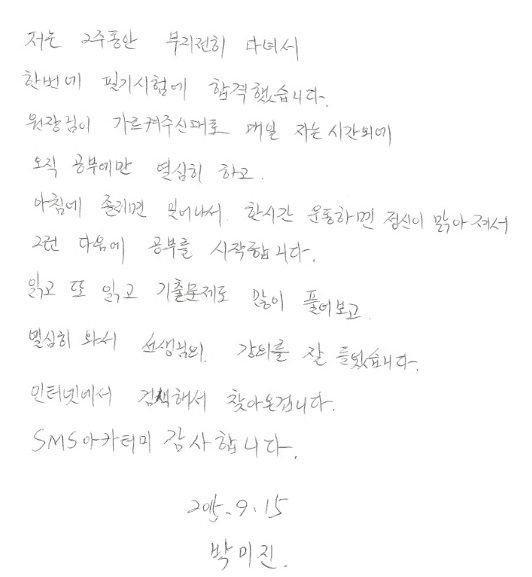 저는 2주동안 부지런히 다녀서
한번에 필기시험에 합격했습니다.
원장님이 가르켜주신대로 매일 자는시간외에
오직 공부에만 열심히 하고.
아침에 졸리면 일어나서. 한시간 운동하면 정신이 맑아져서
그런 다음에 공부를 시작합니다.
읽고 또 읽고 기출문제도 많이 풀어보고.
열심히 와서 선생님의. 강의를 잘 들었습니다.
인터넷에서 검색해서 찾아온겁니다.
SMS아카데미 감사합니다.
2015.9.15
박미진.